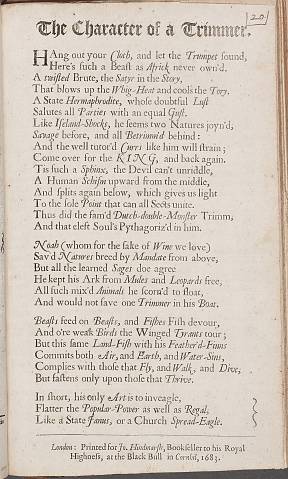 [20]
The Character of a Trimmer.
HAng out your Cloth, and let the Trumpet sound,
Here's such a Beast as Africk never own'd.
A twisted Brute, the Satyr in the Story,
That blows up the Whig-Heat and cools the Tory.
A State Hermaphrodite, whose doubtful Lust
Salutes all Parties with an equal Gust.
Like Iseland-Shocks, he seems two Natures joyn'd,
Savage before, and all Betrimm'd behind:
And the well tutor'd Curs like him will strain;
Come over for the KING, and back again.
'Tis such a Sphinx, the Devil can't unriddle,
A Human Schism upward from the middle,
And splits again below, which gives us light
To the sole Point that can all Sects unite.
Thus did the fam'd Dutch-double-Monster Trimm,
And that cleft Soul's Pythagoriz'd in him.
Noah (whom for the sake of Wine we love)
Sav'd Natures breed by Mandate from above,
But all the learned Sages doe agree
He kept his Ark from Mules and Leopards free,
All such mix'd Animals he scorn'd to float,
And would not save one Trimmer in his Boat.
Beasts feed on Beasts, and Fishes Fish devour,
And o're weak Birds the Winged Tyrants tour;
But this same Land-Fish with his Feather'd-Funns
Commits both Air, and Earth, and Water-Sins,
Complies with those that Fly, and Walk, and Dive,
But fastens only upon those that Thrive.
In short, his only Art is to inveagle,
Flatter the Popular-Power as well as Regal,
Like a State Janus, or a Church Spread-Eagle.
London: Printed for Jo. Hindmarsh, Bookseller to his Royal
Highness, at the Black Bull in Cornhil, 1683.